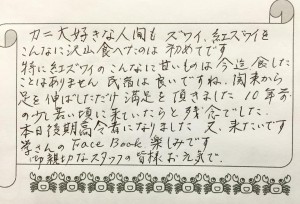 カニ大好きな人間も ズワイ、紅ズワイを
こんなに沢山食べたのは 初めてです
特に紅ズワイのこんなに甘いものは今迄食した
ことはありません 民宿は良いですね、関東から
足を伸ばしただけ満足を頂きました 10年前
の少し若い頃に来ていたらと残念でした.
本日後期高令者になりました 又、来たいです
学さんの Face Book 楽しみです
御親切なスタッフの皆様お元気で.